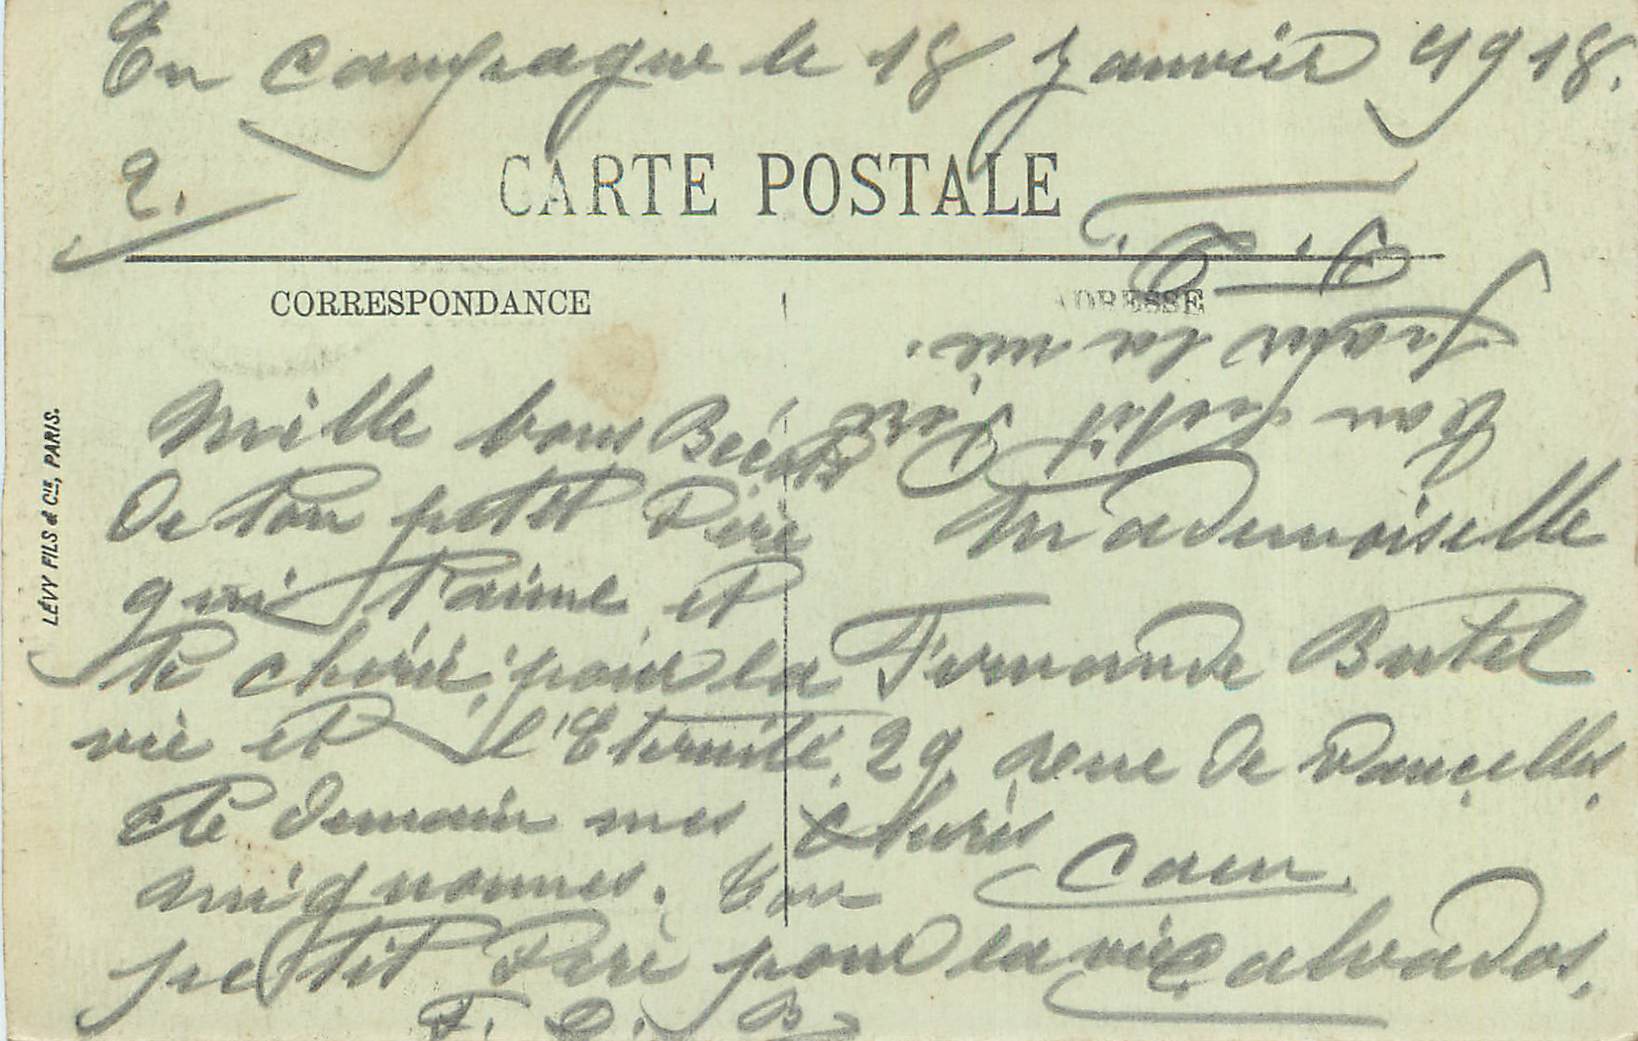 En Campagne le 18 Janvier 1918.
2.
CARTE POSTALE
CORRESPONDANCE
ADRESSE
LÉVY FILS & Cie, PARIS.
Mille bons Bécots
De ton petit Père
qui t'aime et
te chérie, pour la
vie et l'Eternité.
à demain mes Chéris
mignonnes. Ton
petit Père pour la vie
F. D. B
Ton petit Père
pour la vie.
Mademoiselle
Fernande Butel
29 rue de Vaucelles,
Caen.
Calvados.